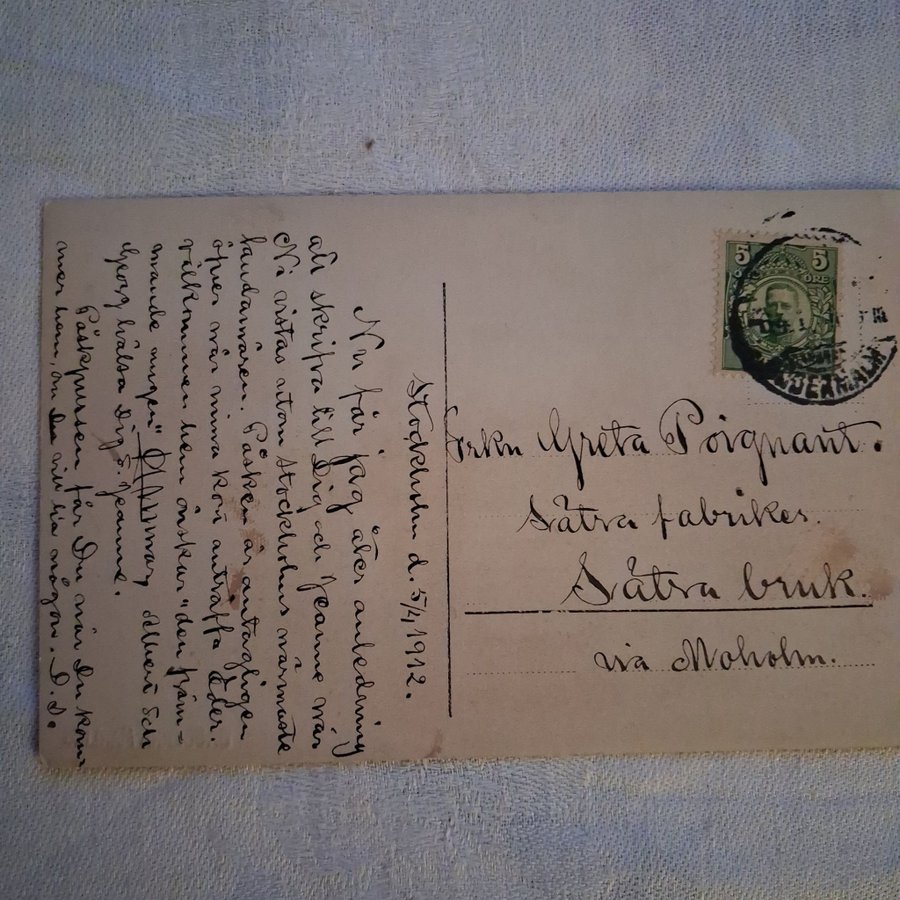 Stockholm d. 5/4 1912.
Nu får jag åter anledning
att skrifva till Dig och Jeanne när
Ni vistas utom Stockholms närmaste
landamären. Påsken är antagligen
öfver när mina kort anträffa Eder.
välkommen hem önskar "den främ-
mande mygen" Albert och
Georg hälsa Dig o. Jeanne.
Påskpussen får Du när Du kom-
mer hem, om Du vill ha någon. D. D.
5 5
ÖRE
Frkn Greta Poignant.
Sätra fabriker.
Sätra bruk.
via Moholm.